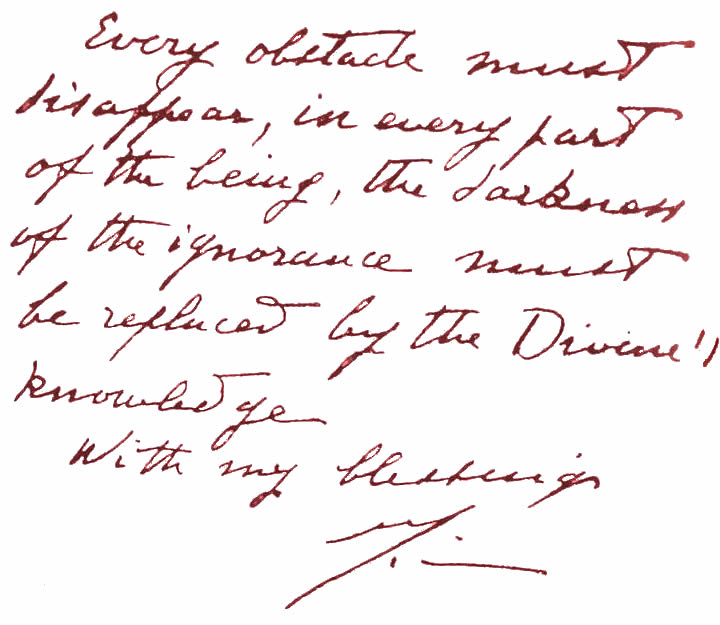 Every obstacle must
disappear, in every part
of the being, the darkness
of the ignorance must
be replaced by the Divine's
knowledge
With my blessings